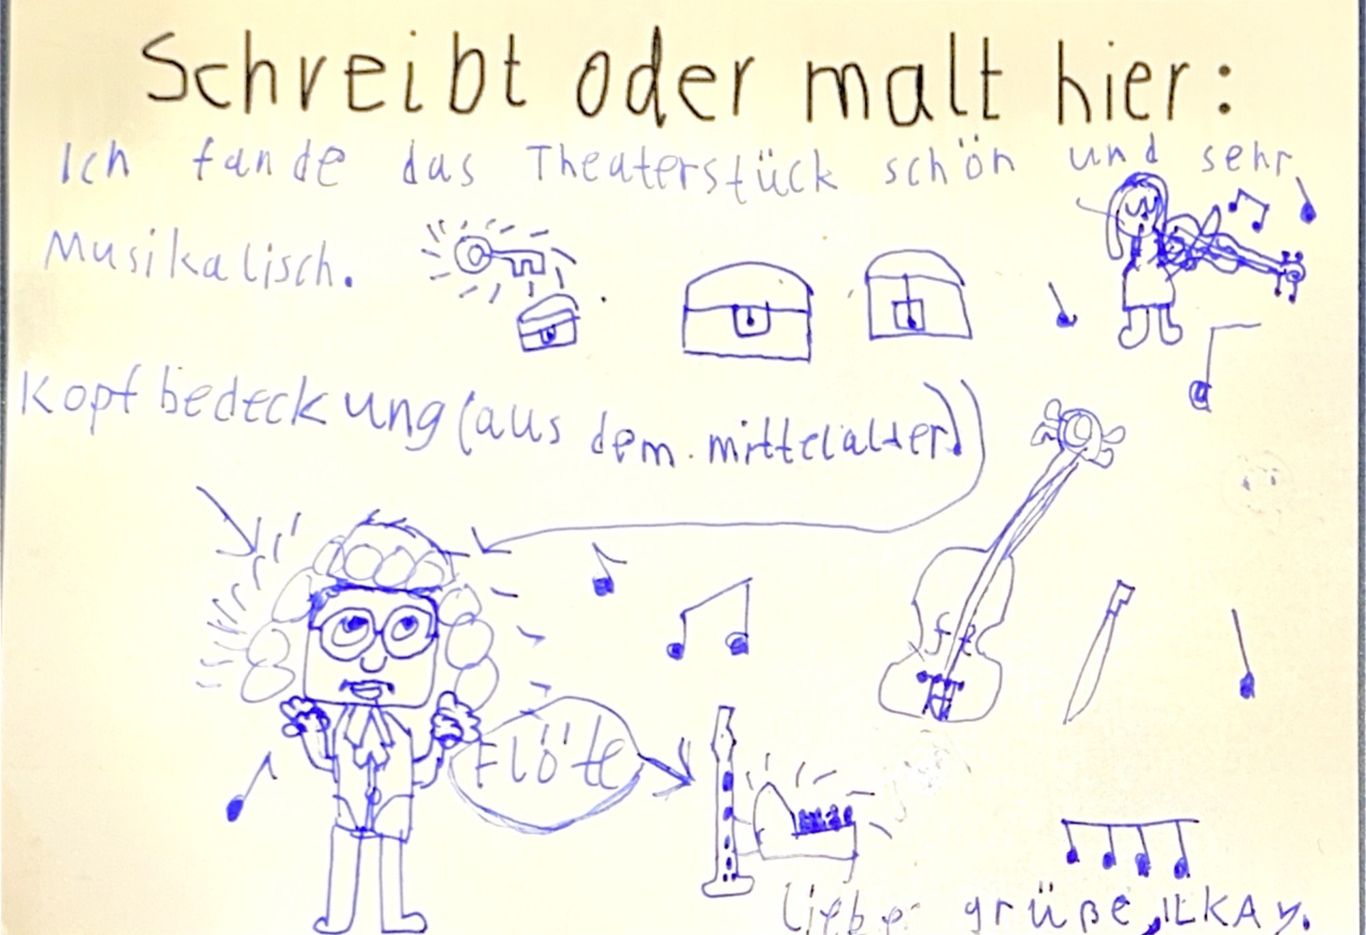 Schreibt oder malt hier:
Ich fande das Theaterstück schön und sehr
Musikalisch.
Kopfbedeckung (aus dem mittelalter)
Flöte
liebe grüße, ILKAY.